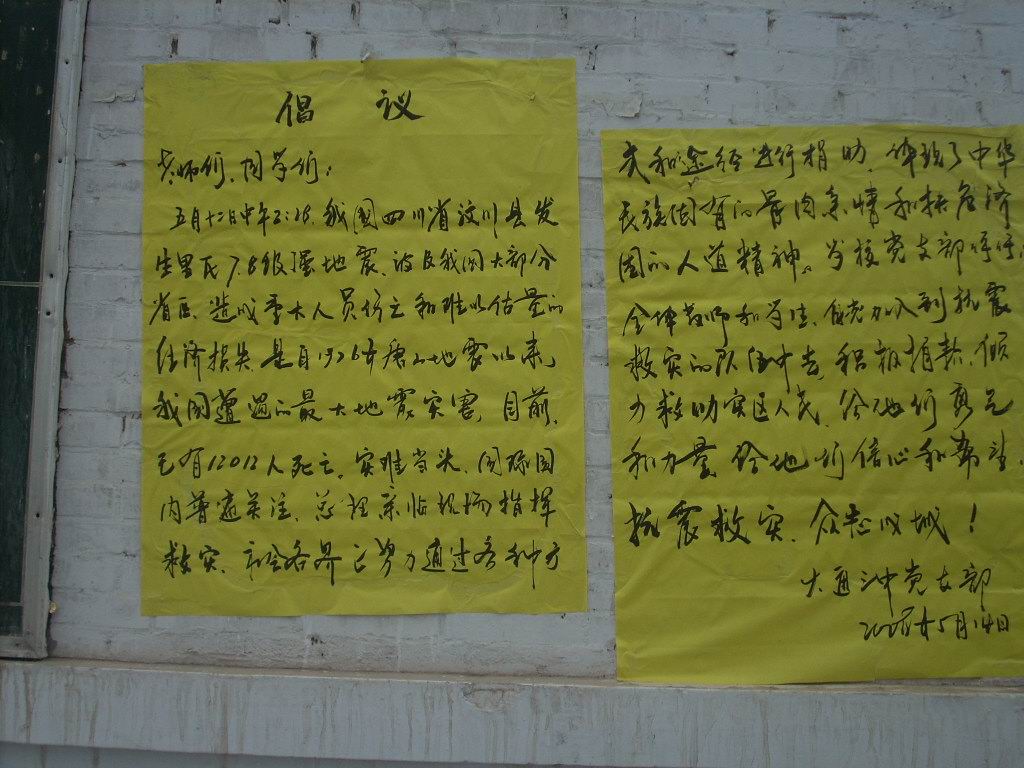 倡议
老师们、同学们：
五月十二日中午2:28，我国四川省汶川县发
生里氏7.8级强地震，波及我国大部分
省区，造成重大人员伤亡和难以估量的
经济损失是自1976年唐山地震以来，
我国遭遇的最大地震灾害，目前，
已有12012人死亡，灾难当头，国际国
内普遍关注，总理亲临现场指挥
救灾，社会各界已努力通过各种方
式和途径进行捐助，体现了中华
民族固有的骨肉亲情和扶危济
困的人道精神。学校党支部呼吁，
全体教师和学生，自觉加入到抗震
救灾的队伍中去，积极捐款，倾
力救助灾区人民，给他们勇气
和力量，给他们信心和希望。
抗震救灾，众志成城！
大通三中党支部
2008年5月14日